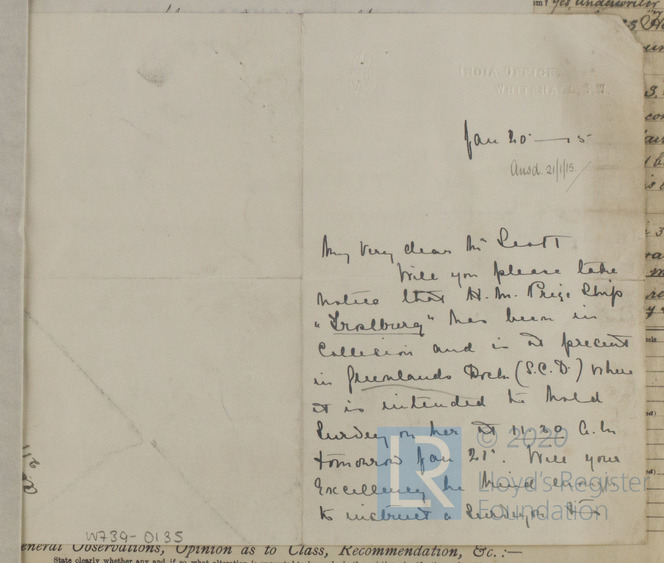 INDIA OFFICE
WHITEHALL, S.W.
Jan 20 — 15
Ansd. 21/1/15.
My very dear Mr Scott
Will you please take
notice that H.M. Prize Ship
"Frostburg" has been in
Collision and is at present
in Greenlands Dock (S.C.D.) where
it is intended to hold
Survey on her at 11.30 A.M
tomorrow Jan 21st. Will your
Excellency be kind enough
to instruct a Surveyor to
LR © 2020
Lloyd's Register
Foundation
W739-0135
General Observations, Opinion as to Class, Recommendation, &c.:—
State clearly whether any and if so what alteration is